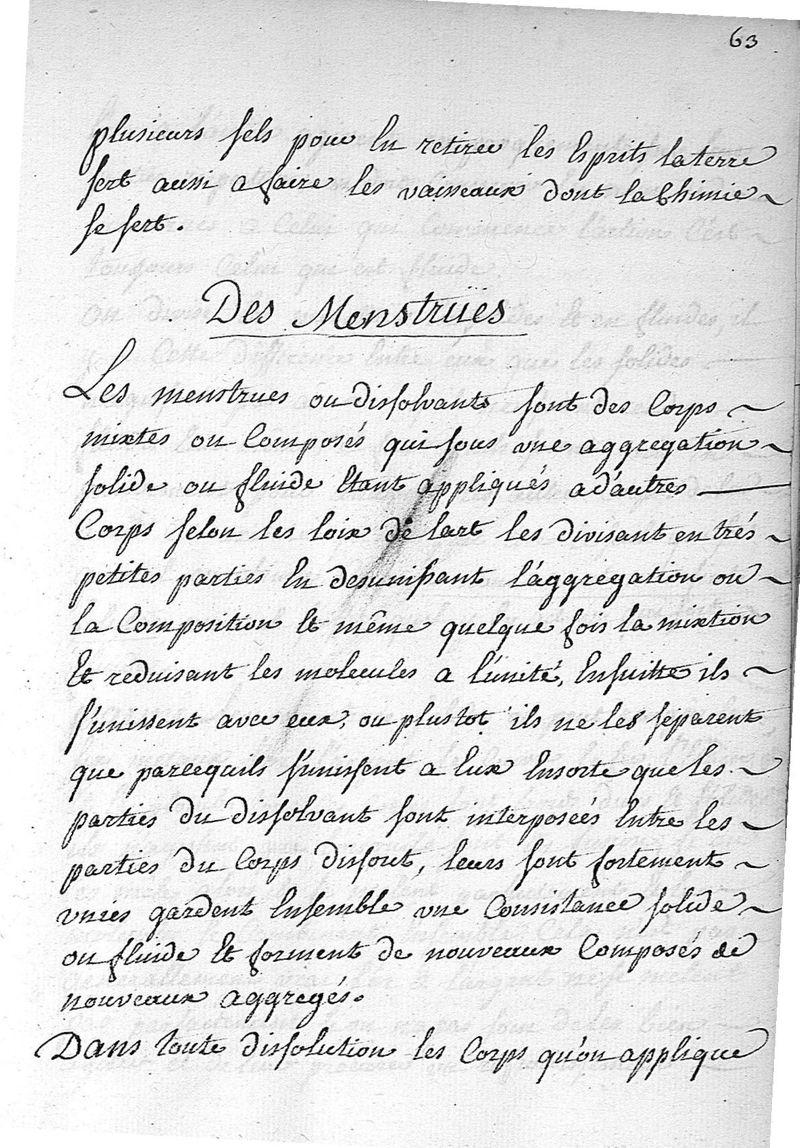 63
plusieurs sels pour En retirer les Esprits la terre
sert aussi a faire les vaisseaux dont la Chimie
se sert.
Des Menstrües
Les menstrues ou dissolvants sont des Corps
mixtes ou Composés qui sous une aggregation
solide ou fluide Etant appliqués a dautres
Corps selon les loix de lart les divisant en trés
petites parties En desunissant l'aggregation ou
la Composition Et même quelque fois la mixtion
Et reduisant les molecules a l'unité, Ensuitte ils
s'unissent avec eux, ou plustot ils ne les separent
que parcequils s'unissent a Eux Ensorte que les
parties du dissolvant sont interposeés Entre les
parties du Corps dissout, leurs sont fortement
unies gardent Ensemble une Consistance solide
ou fluide Et forment de nouveaux Composés de
nouveaux aggregés.
Dans toute dissolution les Corps qu'on applique